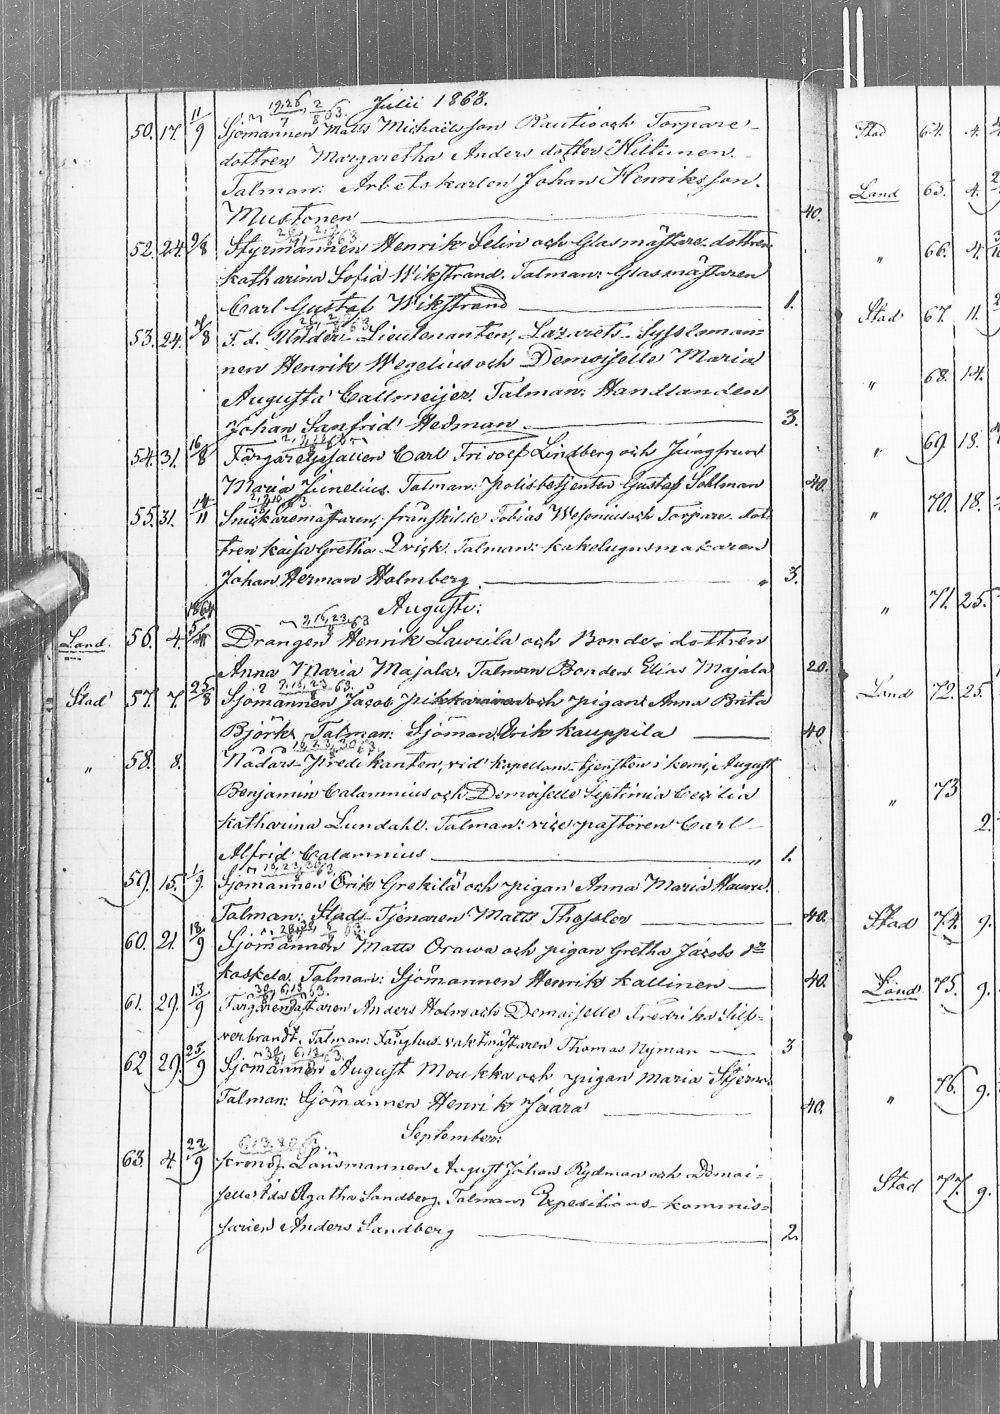 Julii 1863.
19, 26/7, 2/8 63.
50. 17. 11/9 Sjömannen Matts Michaelsson Rautio och Torpare-
dottren Margaretha Anders dotter Hiltunen.
Talman: Arbetskarlen Johan Henriksson
Mustonen 40.
52. 24. 9/8 Styrmannen Henrik Selin och Glasmästare dottren
Katharina Sofia Wikstrand. Talman: Glasmästaren
Carl Gustaf Wikstrand 1.
53. 24. /8 F. d. Under Lieutenanten, Lazarets-Syssloman-
nen Henrik Wegelius och Demoiselle Maria
Augusta Callmeijer. Talman: Handlanden
Johan Sanfrid Hedman 3.
54. 31. 16/8 Färgaregesällen Carl Fridolf Lindberg och Jungfrun
Maria Junelius. Talman: Polisbetjenten Gustaf Sohlman 40.
55. 31. 14/11 Snickaremästaren, frånskilde Tobias Wesenius och Torpare dot-
tren Kaisa Gretha Qvick. Talman: Kakelugnsmakaren
Johan Herman Holmberg " 3.
Augusti:
1864
9, 16, 23/8 63
Land. 56. 4. Drängen Henrik Lawila och Bonde-dottren
Anna Maria Majala. Talman Bonden Elias Majala 20.
9, 16, 23/8 63.
Stad 57. 7. 25/8 Sjömannen Jacob Pikkarainen och pigan Anna Brita
Björk. Talman: Sjöman Erik Kauppila 40.
16, 23, 30/8 63.
" 58. 8. Nådårs-Predikanten, vid Kapellans-tjensten i Kemi, August
Benjamin Calamnius och Demoiselle Septimia Cecilia
Katharina Lundahl. Talman: vice pastoren Carl
Alfrid Calamnius " 1.
16, 23, 30/8 63.
59. 15. 1/9. Sjömannen Erik Grekilä och pigan Anna Maria
Talman: Stads Tjenaren Matts Thessler 40.
60. 21. 13/9 Sjömannen Matts Orawa och pigan Gretha Jacobs dr
Koskela. Talman: Sjömannen Henrik Kallinen 40.
30/8, 6, 13/9 63.
61. 29. 13/9 Färgaremästaren Anders Holm och Demoiselle Fredrika Silf-
verbrandt. Talman: Fånghus-vaktmästaren Thomas Nyman 3
30/8, 6, 13/9 63.
62 29. 25/9 Sjömannen August Moukka och pigan Maria
Talman: Sjömannen Henrik Jaara 40.
September:
6, 13, 20/9 63.
63 4 22/9 Kronol. Länsmannen August Johan Rydman och Demoi-
selle Ida Agatha Sandberg. Talman: Expeditions-kommis-
sarien Anders Sandberg 2.
Stad 64. 4.
Land 65. 4.
" 66. 4.
Stad 67. 11.
" 68. 14.
" 69. 18.
" 70. 18.
" 71. 25.
Land 72. 25.
" 73
2.
Stad 74. 9.
Land 75. 9.
" 76. 9.
Stad 77. 9.